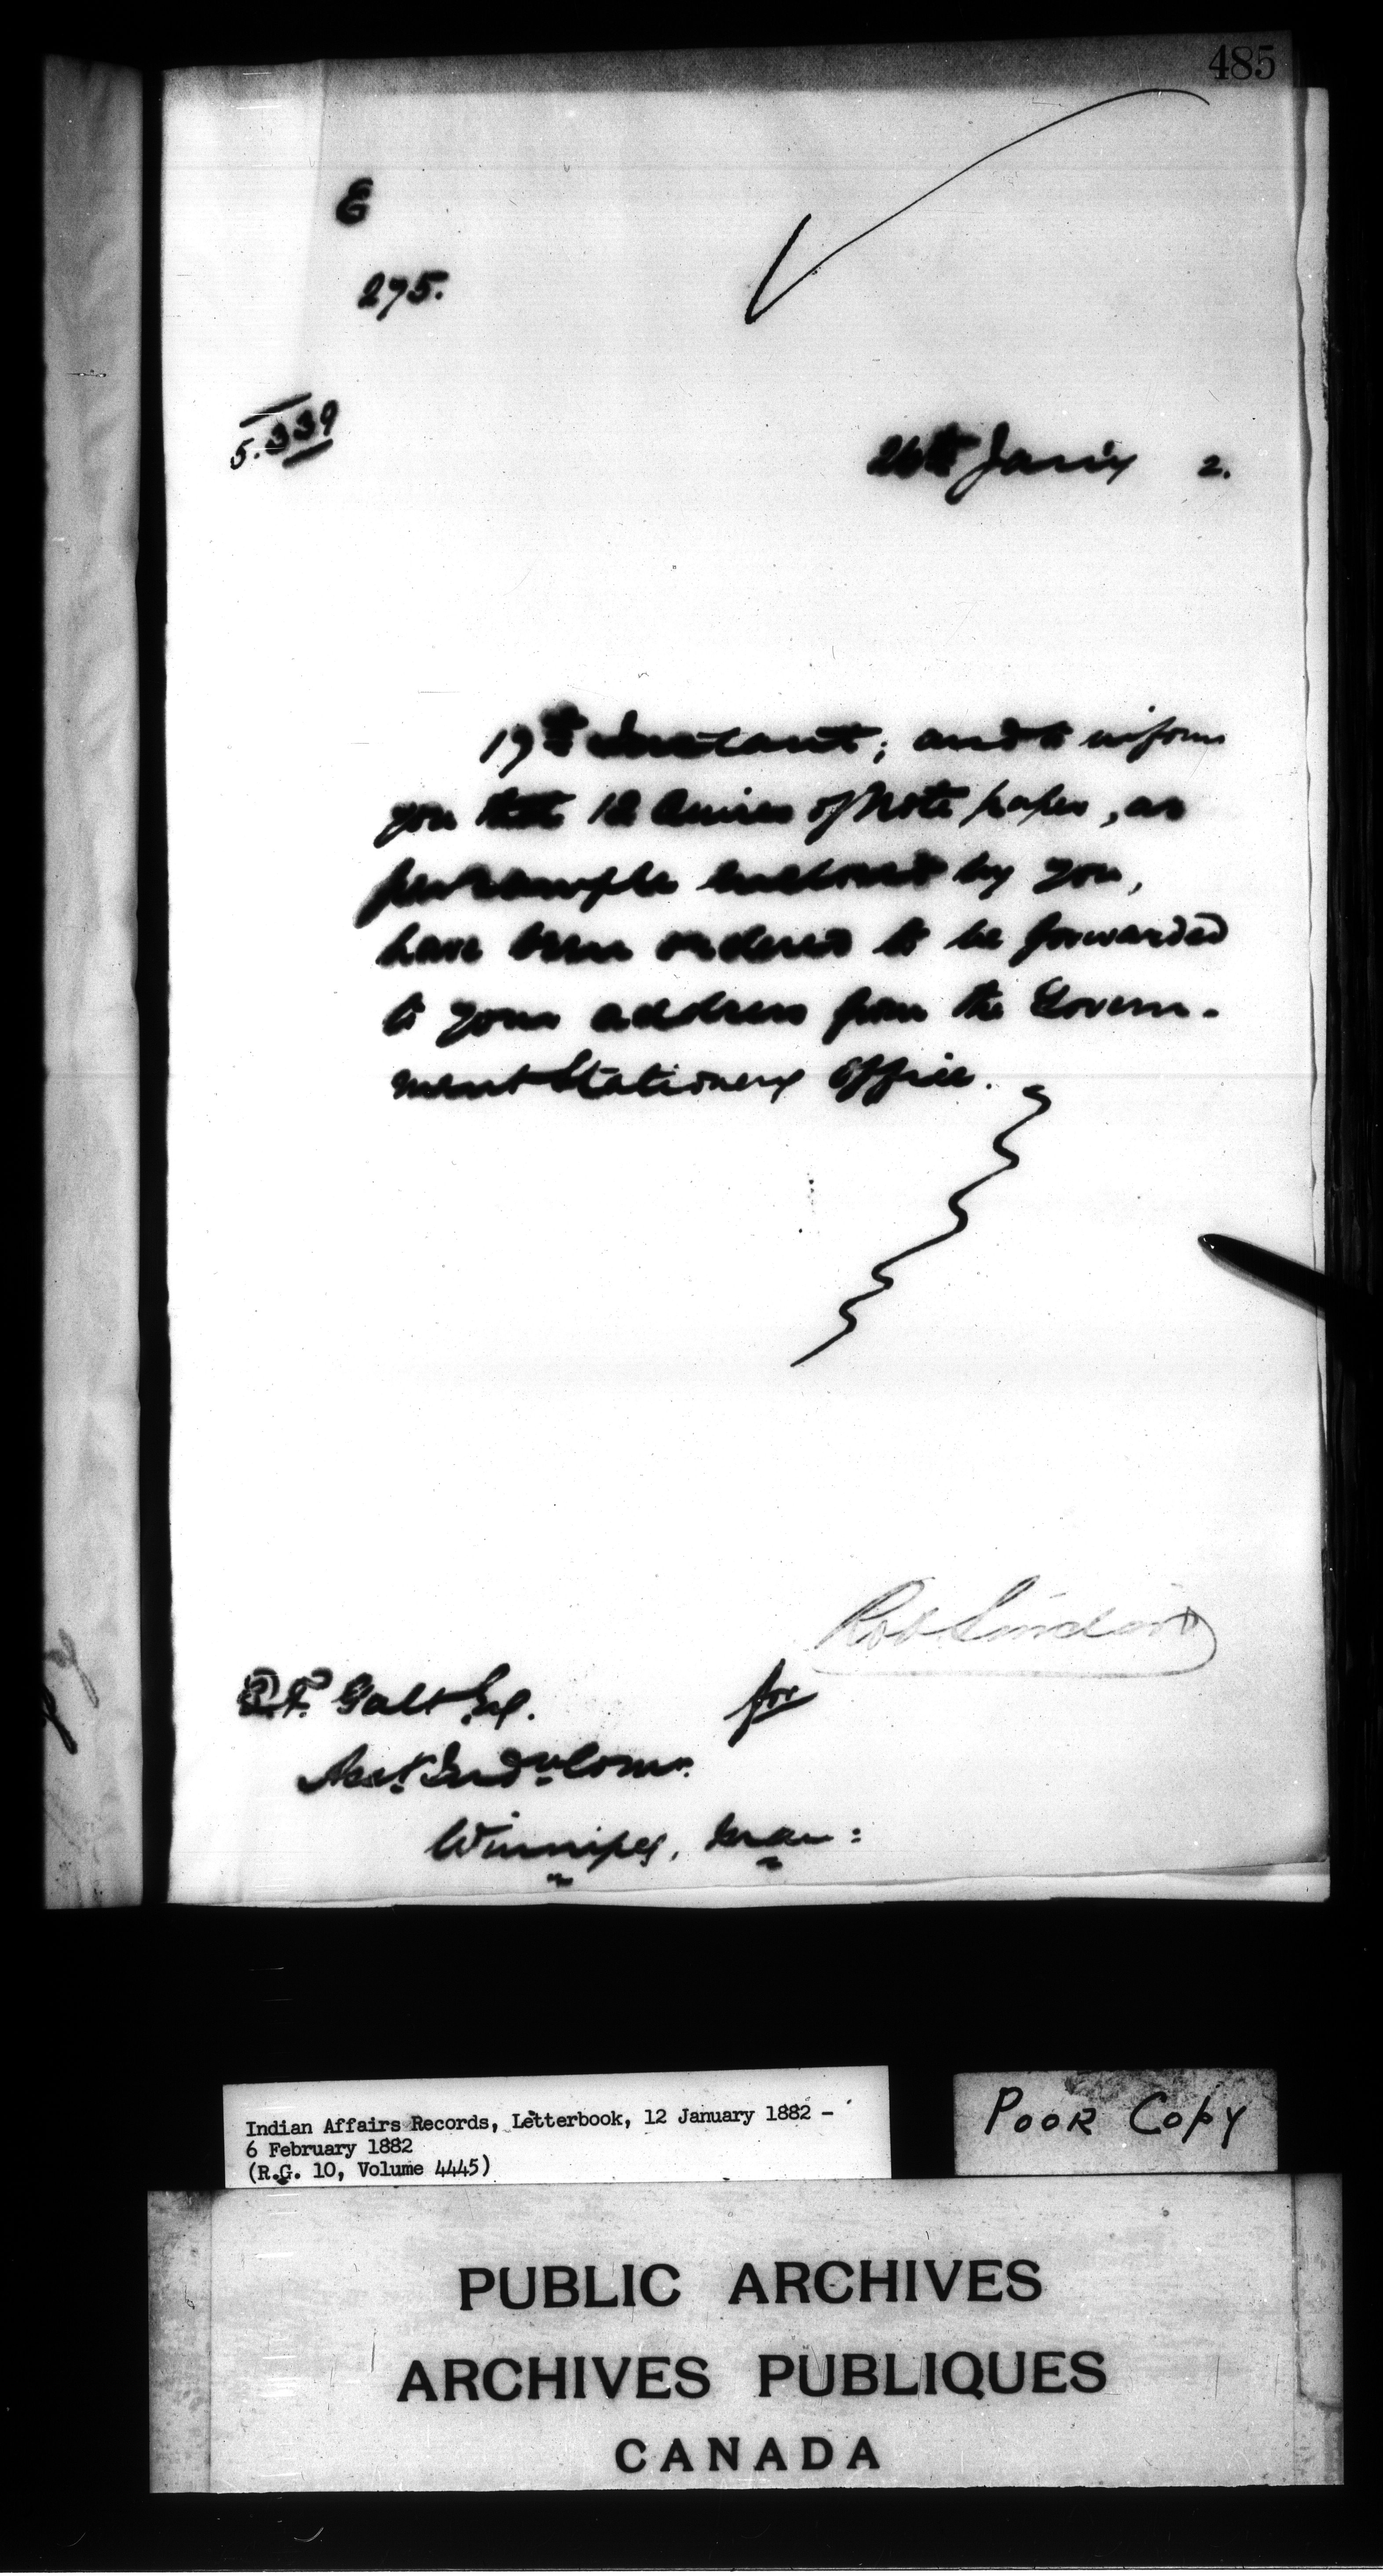 485
E
275.
5.339
26th Jan'y 2.
19th Instant; and to inform
you that 12 Quires of Note paper, as
per sample enclosed by you,
have been ordered to be forwarded
to your address from the Govern-
ment Stationery Office.
Rob Sinclair
for
E.T. Galt Esq.
Asst. Indn. Comr.
Winnipeg, Man:
Indian Affairs Records, Letterbook, 12 January 1882 -
6 February 1882
(R.G. 10, Volume 4445)
POOR COPY
PUBLIC ARCHIVES
ARCHIVES PUBLIQUES
CANADA